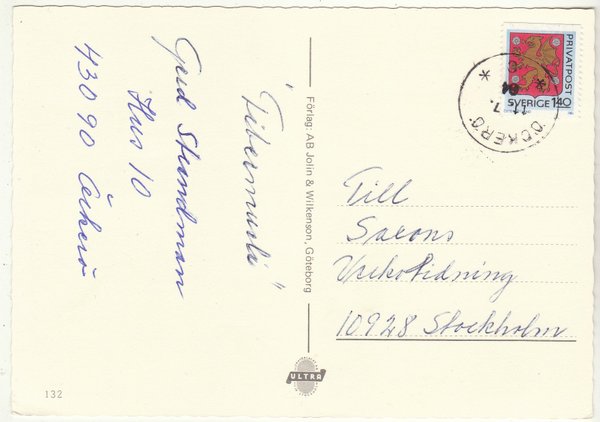 Gud Strandman
Hus 10
430 90 Öckerö
"Fibermusli"
Förlag: AB Jolin & Wilkenson, Göteborg
ULTRA
132
PRIVATPOST
SVERIGE 140
ÖCKERÖ
11.7.
84
Till
Saxons
Veckotidning
10928 Stockholm